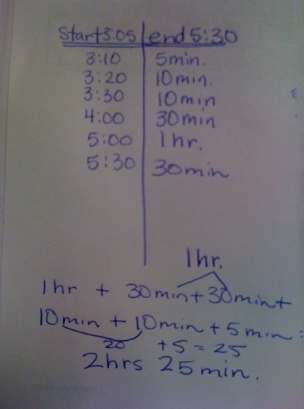 Start 3:05 end 5:30
3:10 5min.
3:20 10min.
3:30 10min
4:00 30min
5:00 1hr.
5:30 30min
1hr.
1hr + 30min + 30min +
10min + 10min + 5min =
20 + 5 = 25
2hrs 25 min.